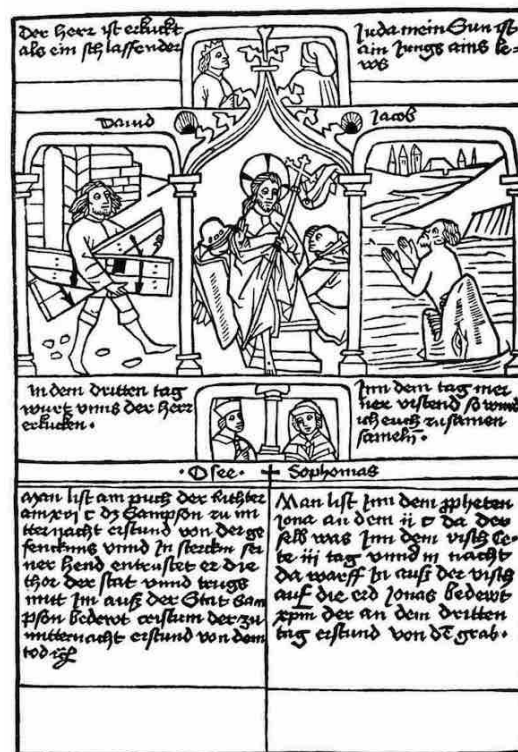 Der herr ist erkückt
als ein schlaffender
Juda mein Sun ist
ain Jungs ains le-
ws
Dauid
Jacob
in dem dritten tag
wurt vnns der herr
erkücken.
Inn dem tag mei
ner vrstend so wird
ich euch zu samen
sameln.
Osee
Sophonias
Man list am puch der Richter
am xvi c dz Sampson zu mi
tternacht erstund von der ge
fencknus vnnd in stercken sei
ner hend entrustet er die
thor der stat vnnd trugs
mitt im auß der Stat Sam
pson bedewt cristum der zu
mitternacht erstund von dem
tod
Man list Jnn dem ppheten
Jona an dem ii c da der
selb was Jnn dem visch
iii tag vnnd iii nacht
da warff in auß der visch
auf die erd Jonas bedewt
xpm der an dem dritten
tag erstund von dē grab.